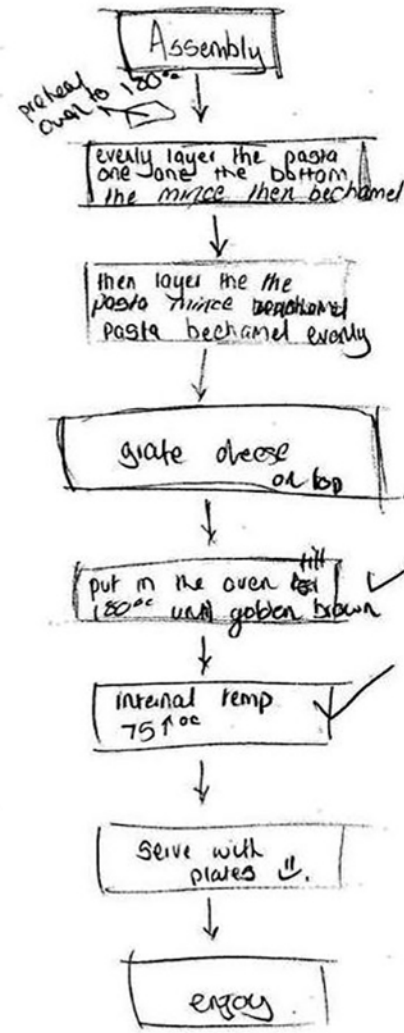 Assembly
preheat
oven to 180°c
evenly layer the pasta
one one the bottom
the mince then bechamel
then layer the the
pasta mince bechamel
pasta bechamel evenly
grate cheese
on top
till
put in the oven
180°c until golden brown
internal temp
75↑°c
serve with
plates
enjoy